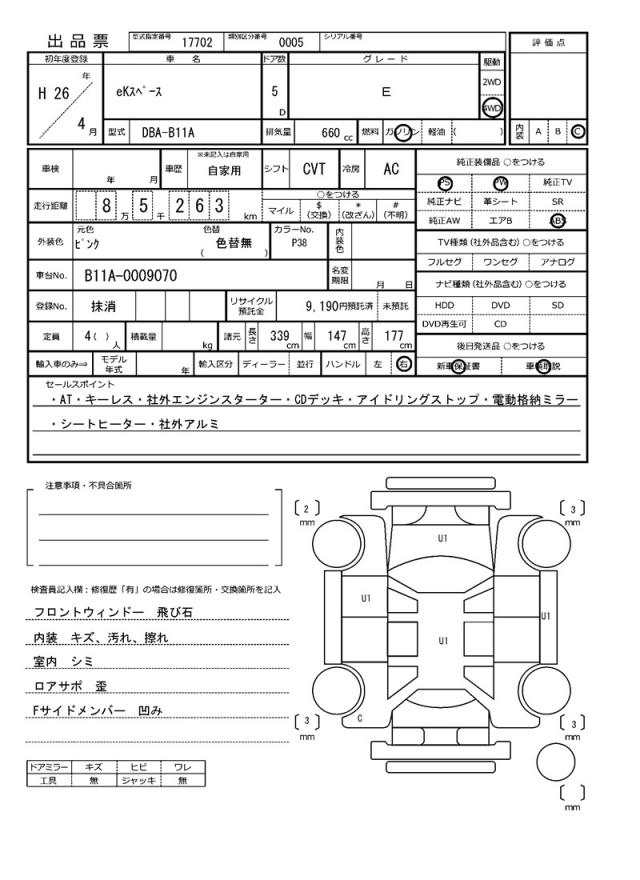 出品票 型式指定番号 17702 類別区分番号 0005 シリアル番号
評価点
初年度登録 車名 ドア数 グレード 駆動
H 26 年 4 月
eKスペース
5 D
E
2WD
4WD
型式 DBA-B11A 排気量 660 cc 燃料 ガソリン 軽油 ( )
内装 A B C
車検 年 月 車歴 ※未記入は自家用 自家用 シフト CVT 冷房 AC
走行距離 8 万 5 千 2 6 3 km
○をつける
マイル $(交換) *(改ざん) #(不明)
外装色 元色 ピンク 色替 色替無 ( ) カラーNo. P38 内装色
車台No. B11A-0009070 名変期限 月 日
登録No. 抹消 リサイクル預託金 9,190円預託済 未預託
定員 4( ) 人 積載量 kg 諸元 長さ 339 cm 幅 147 cm 高さ 177 cm
輸入車のみ⇒ モデル年式 年 輸入区分 ディーラー 並行 ハンドル 左 右
純正装備品 ○をつける
PS PW 純正TV
純正ナビ 革シート SR
純正AW エアB ABS
TV種類 (社外品含む) ○をつける
フルセグ ワンセグ アナログ
ナビ種類 (社外品含む) ○をつける
HDD DVD SD
DVD再生可 CD
後日発送品 ○をつける
新車保証書 車輌取説
セールスポイント
・AT・キーレス・社外エンジンスターター・CDデッキ・アイドリングストップ・電動格納ミラー
・シートヒーター・社外アルミ
注意事項・不具合箇所
検査員記入欄：修復歴「有」の場合は修復箇所・交換箇所を記入
フロントウィンドー 飛び石
内装 キズ、汚れ、擦れ
室内 シミ
ロアサポ 歪
Fサイドメンバー 凹み
ドアミラー キズ ヒビ ワレ
工具 無 ジャッキ 無
2 mm
3 mm
U1
U1
U1
U1
G
3 mm
3 mm
mm